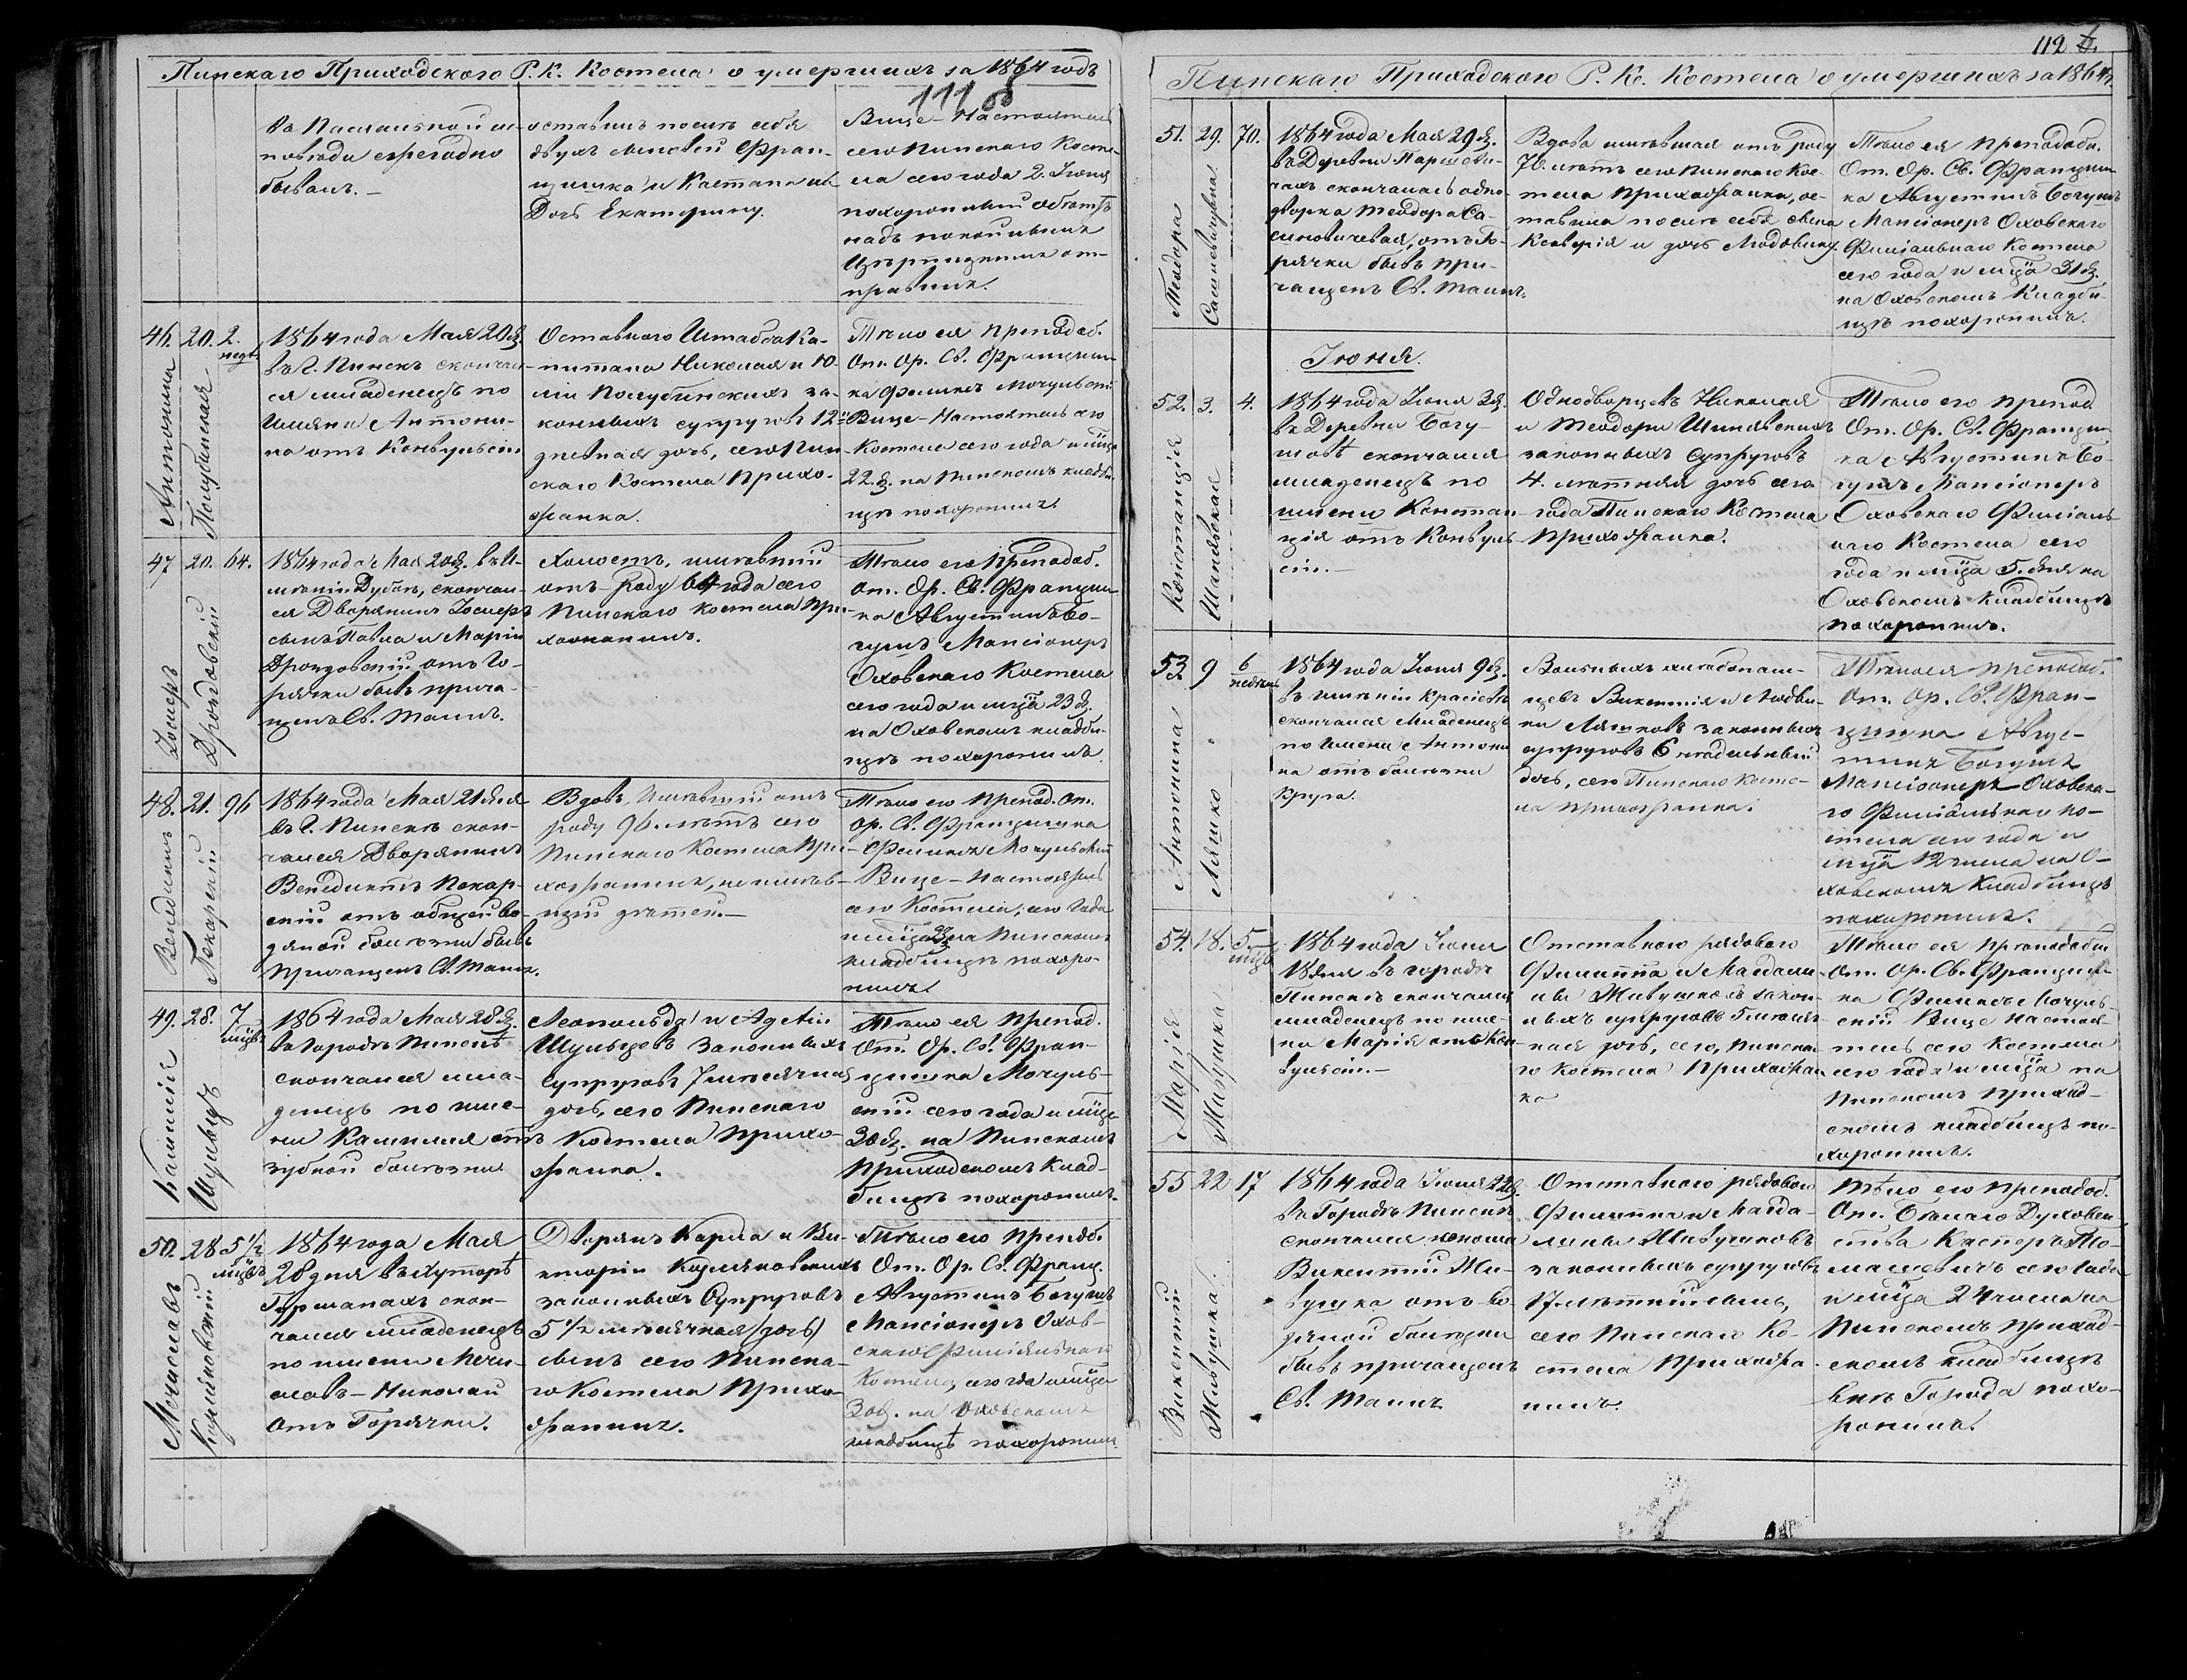 Пинскаго Приходского Р. К. Костела о умершихъ за 1864 годъ
111 об
оставилъ послѣ себя
двухъ сыновей Фран-
цишка и Каетана и
Дочь Екатерину.
бывалъ. —
Вице-Настоятель
сего Пинскаго Косте-
ла сего года 2. Іюня
похоронивши
надъ
правилъ.
46. 20. 2. нед.
Антонина Полубинская
1864 года Мая 20 д.
въ Г. Пинскъ скончал-
ся младенецъ по
Имяни Антони-
на отъ Конвульсіи
Оставного Штабсъ Ка-
питана Николая и Ю-
ліи Полубинскихъ за-
конныхъ супруговъ 12-
дневная дочь, сего Пин-
скаго Костела Прихо-
жанка.
Тѣло ея Преподоб.
От. Ор. Св. Францишк-
ка Феликсъ Мочульскі
Вице-Настоятель сего
Костела сего года и мца
22. д. на Пинскомъ кладби-
щѣ похоронилъ.
47 20. 64.
Іосифъ Дроздовскій
1864 года Мая 20 д. въ И-
мѣніи Дубоѣ, скончал-
ся Дворянинъ Іосифъ
сынъ Павла и Маріи
Дроздовскій отъ Го-
рячки бывъ прича-
щенъ Св. Таинъ.
Холостъ, имѣвшій
отъ Роду 64 года сего
Пинскаго Костела При-
хожанинъ.
Тѣло его Преподоб.
От. Ор. Св. Францишк-
ка Августинъ Бо-
гушъ Мансіонеръ
Оховскаго Костела
сего года и мца 23 д.
на Оховскомъ кладби-
щѣ похоронилъ.
48. 21. 96
Венедиктъ Пекарскій
1864 года Мая 21 дня
въ Г. Пинскъ скон-
чался Дворянинъ
Венедиктъ Пекар-
скій отъ общей во-
дяной болѣзни бывъ
Причащенъ Св. Таинъ.
Вдовъ, Имѣвшій отъ
роду 96. лѣтъ сего
Пинскаго Костела При-
хожанинъ, не имѣв-
шій дѣтей. —
Тѣло его Препод. От.
Ор. Св. Францишка
Феликсъ Мочульскій
Вице-Настоятель
сего Костела, сего года
и мца 23 на Пинскомъ
кладбищѣ похоро-
нилъ.
49. 28. 7 мцвъ
Камилія Шульцъ
1864 года Мая 28 д.
въ Городѣ Пинскѣ
скончался мла-
денецъ по име-
ни Камилия отъ
зубной болѣзни
Леопольда и Аделіи
Шульцевъ Законныхъ
Супруговъ 7 мѣсячная
дочь, сего Пинскаго
Костела Прихо-
жанка.
Тѣло ея Препод.
От. Ор. Св. Фран-
цишка Мочуль-
скій сего года и мца
30 д. на Пинскомъ
Приходскомъ Клад-
бищѣ похоронилъ.
50. 28 5 1/2 мцвъ
Мечиславъ
1864 года Мая
28 дня въ Хуторѣ
скон-
чался младенецъ
по имени Мечи-
славъ-Николай
отъ Горячки.
Дворянъ Карла и Ви-
кторіи
законныхъ Супруговъ
5 1/2 мѣсячная (дочь)
сынъ сего Пинска-
го Костела Прихо-
жанинъ.
Тѣло его Препдб.
От. Ор. Св. Франц.
Августинъ Богушъ
Мансіонеръ Охов-
скаго Филіальнаго
Костела, сего года и мца
30 д. на Оховскомъ
кладбищѣ похоронилъ
112 б.
Пинскаго Приходского Р. К. Костела о умершихъ за 1864 г.
51. 29. 70.
Теодора
1864 года Мая 29 д.
въ Деревни Парщеви-
чахъ скончалась одно-
дворка Теодора Са-
отъ Го-
рячки бывъ при-
чащенъ Св. Таинъ.
Вдова имѣвшая отъ роду
70. лѣтъ сего Пинскаго Кос-
тела Прихожанка, ос-
тавила послѣ себя сына
Ксаверія и дочь Людовику.
Тѣло ея Преподоби.
От. Ор. Св. Францишк-
ка Августинъ Богушъ
Мансіонеръ Оховскаго
Филіальнаго Костела
сего года и мца 31 д.
на Оховскомъ Кладби-
щѣ похоронилъ.
Іюня.
52. 3. 4.
Констанція
1864 года Іюня 3 д.
въ Деревни Богу-
скончался
младенецъ по
имени Констан-
ція отъ Конвуль-
сіи. —
Однодворцевъ Николая
и Теодоры
законныхъ супруговъ
4. лѣтняя дочь сего
года Пинскаго Костела
Прихожанка.
Тѣло его препод.
От. Ор. Св. Францишк-
ка Августинъ Бо-
гушъ Мансіонеръ
Оховскаго Филіаль-
наго Костела сего
года и мца 5. дня на
Оховскомъ Кладбищѣ
похоронилъ.
53. 9 6 недѣль
Антонина Ляшко
1864 года Іюня 9 д.
въ имѣніи Красіевѣ
скончался Младенецъ
по Имени Антони-
на отъ болѣзни
Крупа.
Вольныхъ хлѣбопаш-
цевъ Викентія и Людви-
ки Ляшковъ законныхъ
супруговъ 6 недѣльный
дочь, сего Пинскаго Косте-
ла прихожанка.
Тѣло ея преподоб.
От. Ор. Св. Фран-
цишка Авгус-
тинъ Богушъ
Мансіонеръ Оховска-
го Филіальнаго Ко-
стела сего года и
мца 12 числа на О-
ховскомъ Кладбищѣ
похоронилъ.
54. 18. 5 мцвъ
Марія Живушка
1864 года Іюня
18 дня въ городѣ
Пинскѣ скончался
младенецъ по име-
ни Марія отъ Кон-
вульсіи. —
Отставного рядового
Филиппа и Магдали-
ны Живушковъ закон-
ныхъ супруговъ 5 мѣсяч-
ная дочь, сего, Пинска-
го Костела Прихожан-
ка
Тѣло ея преподобн.
От. Ор. Св. Францишк-
ка Феликсъ Мочуль-
скій Вице настоя-
тель сего Костела
сего года и мца на
Пинскомъ приход-
скомъ кладбищѣ по-
хоронилъ.
55 22 17
Викентій Живушка.
1864 года Іюня 22 д.
въ Городѣ Пинскѣ
скончался юноша
Викентій Жи-
вушка отъ во-
дяной болѣзни
бывъ причащенъ
Св. Таинъ
Отставного рядового
Филиппа и Магда-
лины Живушковъ
законныхъ супруговъ
17 лѣтній сынъ,
сего Пинскаго Ко-
стела Прихожа-
нинъ.
Тѣло его преподоб.
От. Бѣлаго Духовен-
ства Касперъ То-
машевичъ сего года
и мца 24 числа на
Пинскомъ приход-
скомъ кладбищѣ
внѣ Города похо-
ронилъ.